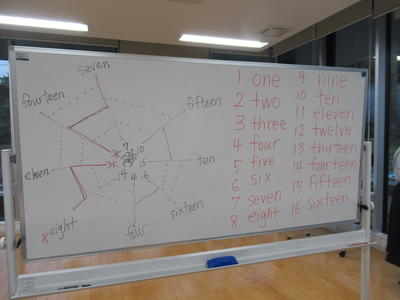 seven
fourteen
fifteen
eleven
ten
8 eight
four
sixteen
7
10
15
14 4 16
1 one
2 two
3 three
4 four
5 five
6 six
7 seven
8 eight
9 nine
10 ten
11 eleven
12 twelve
13 thirteen
14 fourteen
15 fifteen
16 sixteen